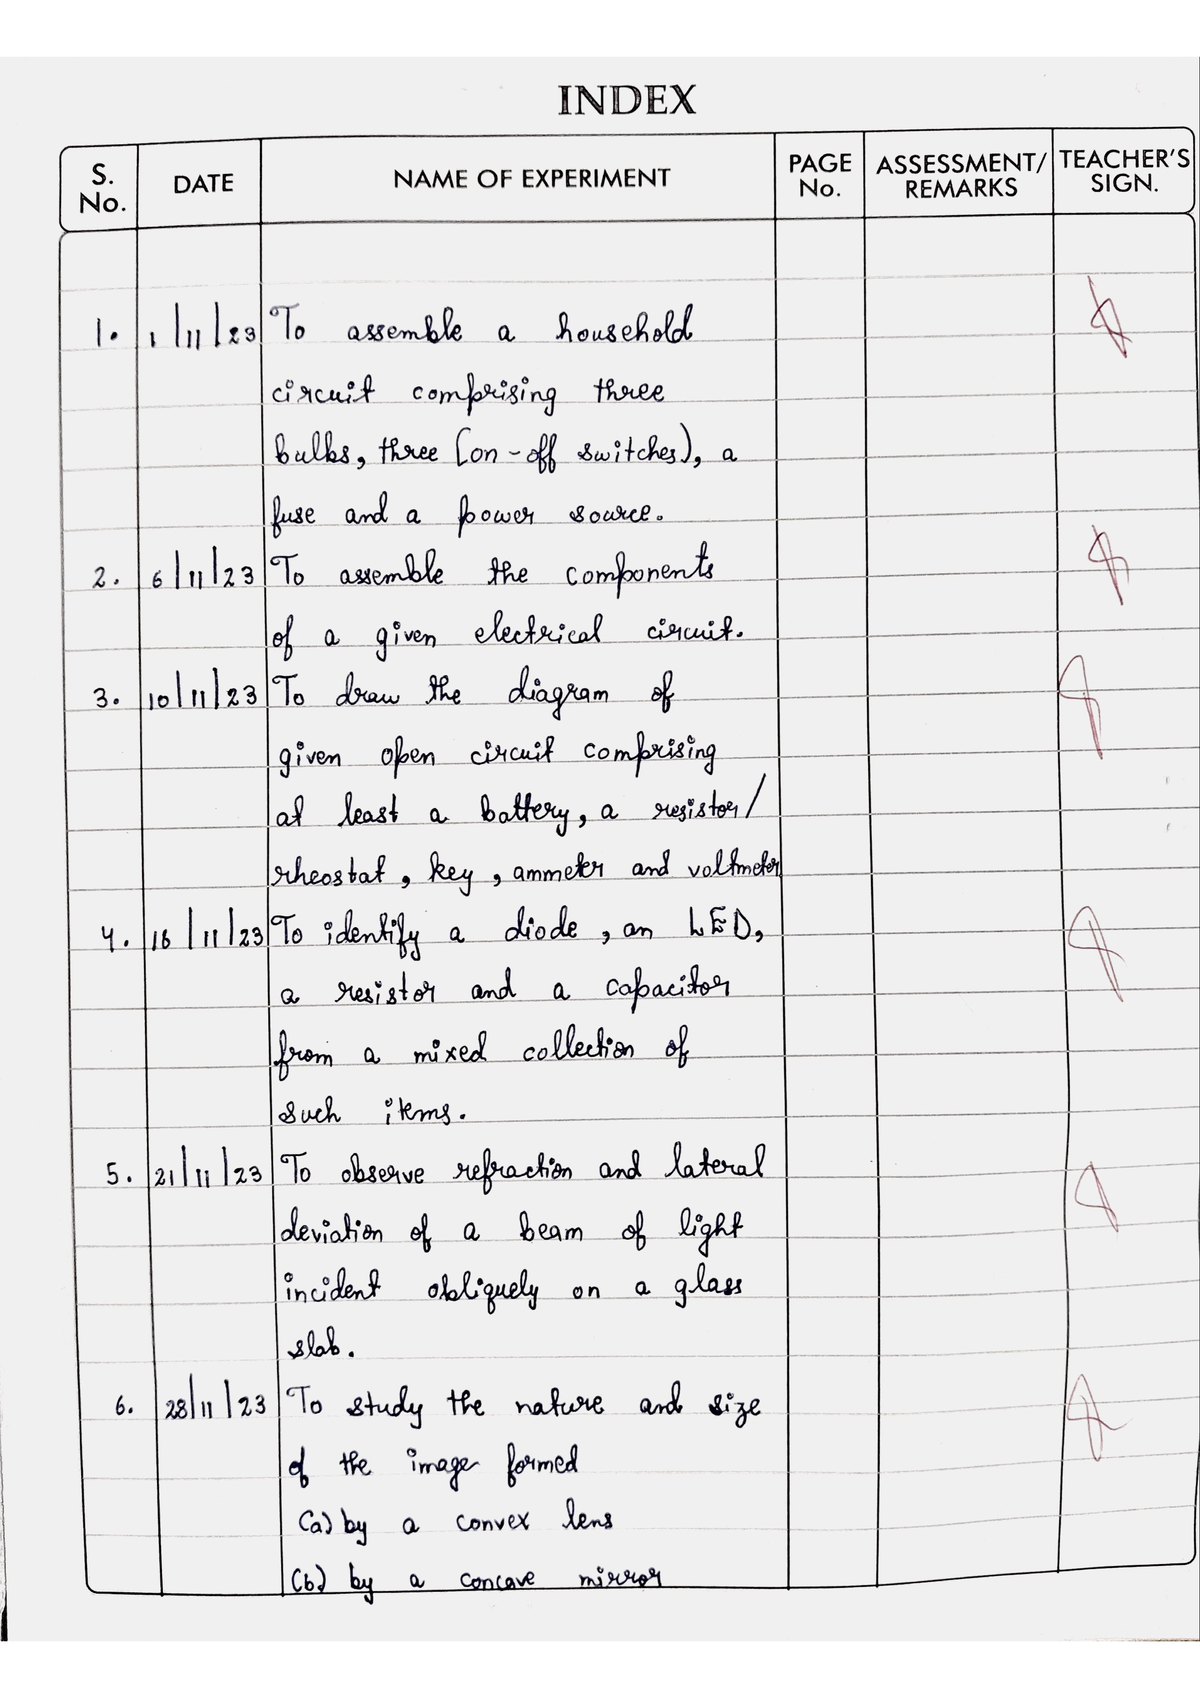 INDEX
S. No. DATE NAME OF EXPERIMENT PAGE No. ASSESSMENT/ REMARKS TEACHER'S SIGN.
1. 1/11/23 To assemble a household
circuit comprising three
bulbs, three (on-off switches), a
fuse and a power source.
2. 6/11/23 To assemble the components
of a given electrical circuit.
3. 10/11/23 To draw the diagram of
given open circuit comprising
at least a battery, a resistor/
rheostat, key, ammeter and voltmeter
4. 16/11/23 To identify a diode, an LED,
a resistor and a capacitor
from a mixed collection of
such items.
5. 21/11/23 To observe refraction and lateral
deviation of a beam of light
incident obliquely on a glass
slab.
6. 28/11/23 To study the nature and size
of the image formed
(a) by a convex lens
(b) by a concave mirror